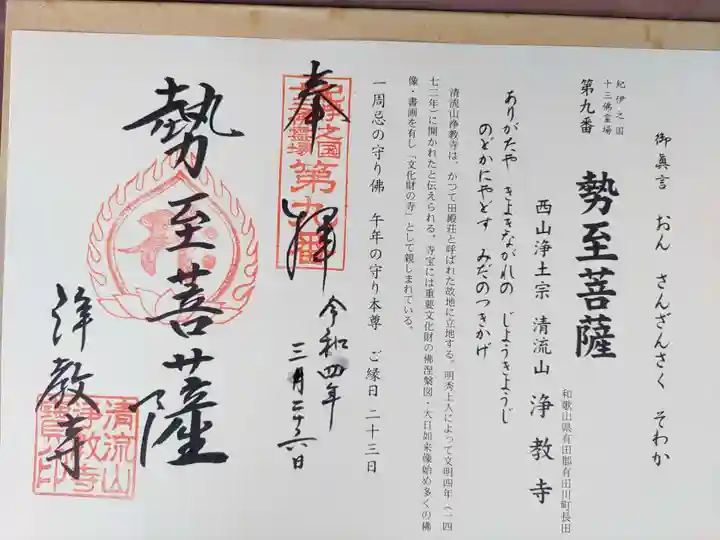 御眞言 おん さんざんさく そわか
紀伊之国
十三佛霊場
第九番
勢至菩薩
和歌山県有田郡有田川町長田
西山浄土宗 清流山 浄教寺
ありがたや きよきながれの じようきようじ
のどかにやどす みだのつきかげ
清流山浄教寺は、かつて田殿荘と呼ばれた故地に立地する。明秀上人によって文明四年（一四
七二年）に開かれたと伝えられる。寺宝には重要文化財の佛涅槃図・大日如来像始め多くの佛
像・書画を有し「文化財の寺」として親しまれている。
一周忌の守り佛 午年の守り本尊 ご縁日 二十三日
奉拝
紀伊之国
十三佛霊場
第九番
令和四年
三月二十六日
勢至菩薩
浄教寺
清流山
浄教寺
寳印